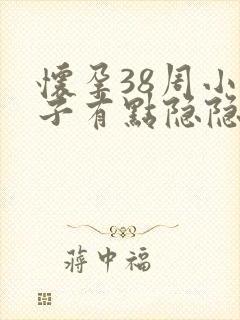 懷孕38周小
子有點隐隐
蔣中福